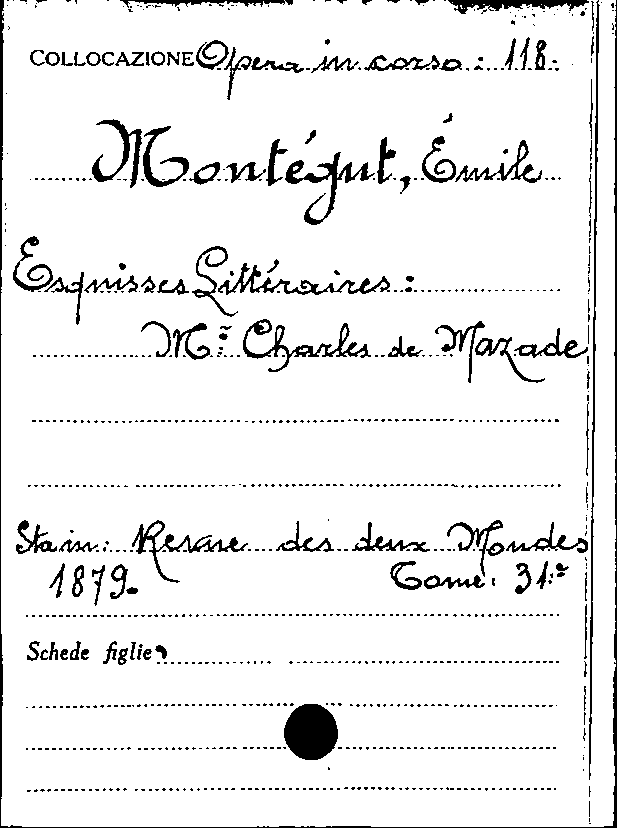 COLLOCAZIONE Opera in corso: 118.
Montégut, Émile
Esquisses Littéraires:
Mr. Charles de Mazade
Sta in: Revue des deux Mondes
1879. Tome: 31.º
Schede figlie